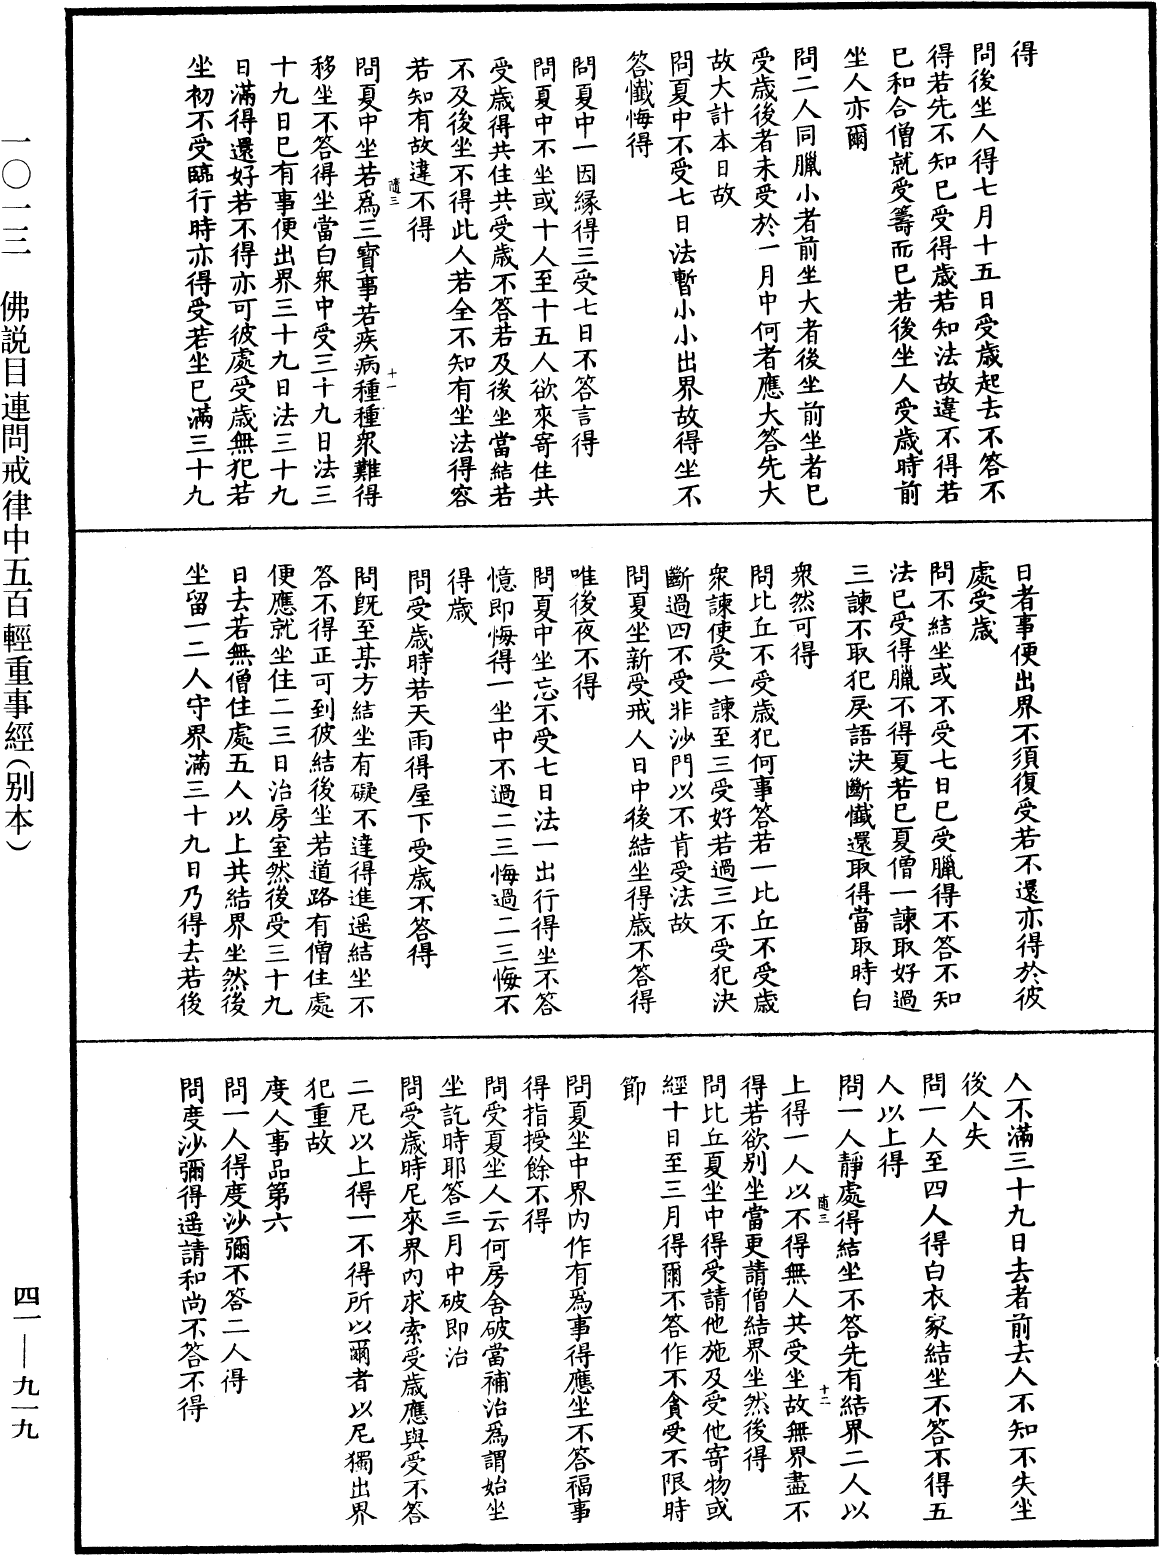 得
問後坐人得七月十五日受歲起去不答不
得若先不知已受得歲若知法故違不得若
已和合僧就受籌而已若後坐人受歲時前
坐人亦爾
問二人同臘小者前坐大者後坐前坐者已
受歲後者未受於一月中何者應大答先大
故大計本日故
問夏中不受七日法暫小小出界故得坐不
答懺悔得
問夏中一因緣得三受七日不答言得
問夏中不坐或十人至十五人欲來寄住共
受歲得共住共受歲不答若及後坐當結若
不及後坐不得此人若全不知有坐法得容
若知有故違不得
隨三
十一
問夏中坐若爲三寳事若疾病種種衆難得
移坐不答得坐當白衆中受三十九日法三
十九日已有事便出界三十九日法三十九
日滿得還好若不得亦可彼處受歲無犯若
坐初不受臨行時亦得受若坐已滿三十九
日者事便出界不須復受若不還亦得於彼
處受歲
問不結坐或不受七日已受臘得不答不知
法已受得臘不得夏若已夏僧一諫取好過
三諫不取犯戾語決斷懺還取得當取時白
衆然可得
問比丘不受歲犯何事答若一比丘不受歲
衆諫使受一諫至三受好若過三不受犯決
斷過四不受非沙門以不肯受法故
問夏坐新受戒人日中後結坐得歲不答得
唯後夜不得
問夏中坐忘不受七日法一出行得坐不答
憶即悔得一坐中不過二三悔過二三悔不
得歲
問受歲時若天雨得屋下受歲不答得
問旣至某方結坐有礙不達得進遥結坐不
答不得正可到彼結後坐若道路有僧住處
便應就坐住二三日治房室然後受三十九
日去若無僧住處五人以上共結界坐然後
坐留一二人守界滿三十九日乃得去若後
人不滿三十九日去者前去人不知不失坐
後人失
問一人至四人得白衣家結坐不答不得五
人以上得
問一人靜處得結坐不答先有結界二人以
隨三
十二
上得一人以不得無人共受坐故無界盡不
得若欲别坐當更請僧結界坐然後得
問比丘夏坐中得受請他施及受他寄物或
經十日至三月得爾不答作不貪受不限時
節
問夏坐中界内作有爲事得應坐不答福事
得指授餘不得
問受夏坐人云何房舍破當補治爲謂始坐
坐訖時耶答三月中破即治
問受歲時尼來界内求索受歲應與受不答
二尼以上得一不得所以爾者以尼獨出界
犯重故
度人事品第六
問一人得度沙彌不答二人得
問度沙彌得遥請和尚不答不得
一〇一三　佛説目連問戒律中五百輕重事經(别本)
四一—九一九